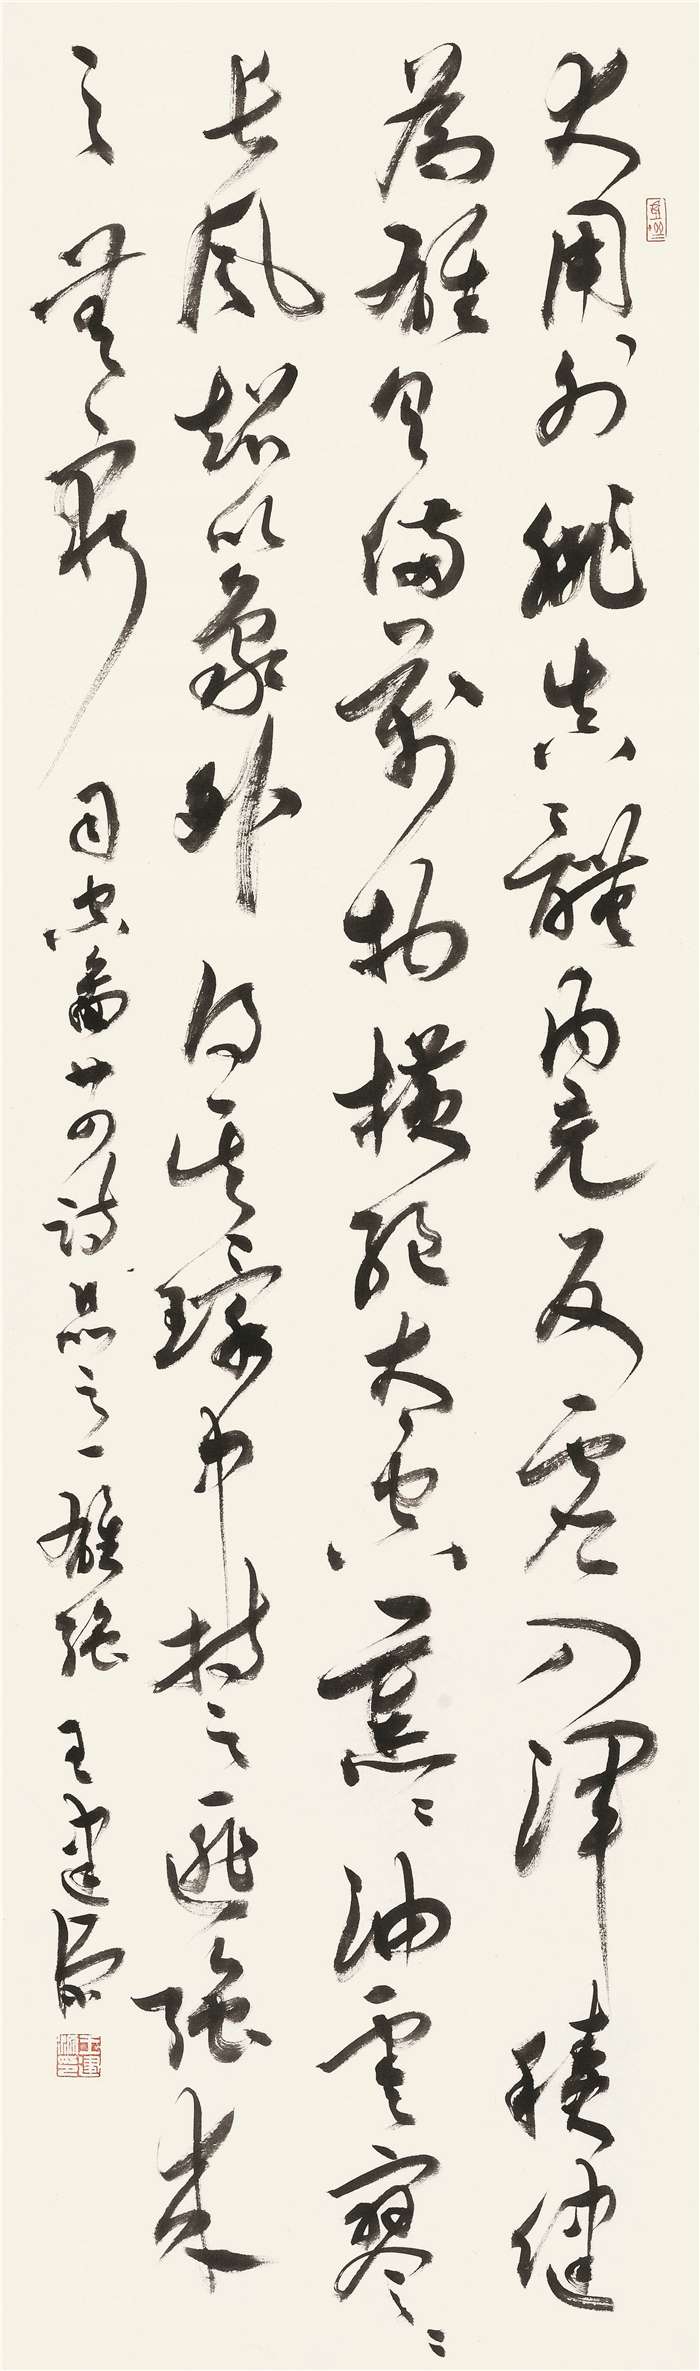 大用外腓真體內充反虛入渾積健
為雄具備萬物橫絕太空荒荒油雲寥寥
長風超以象外得其環中持之匪強來
之無窮 司空圖廿四詩品之一雄強 王建源